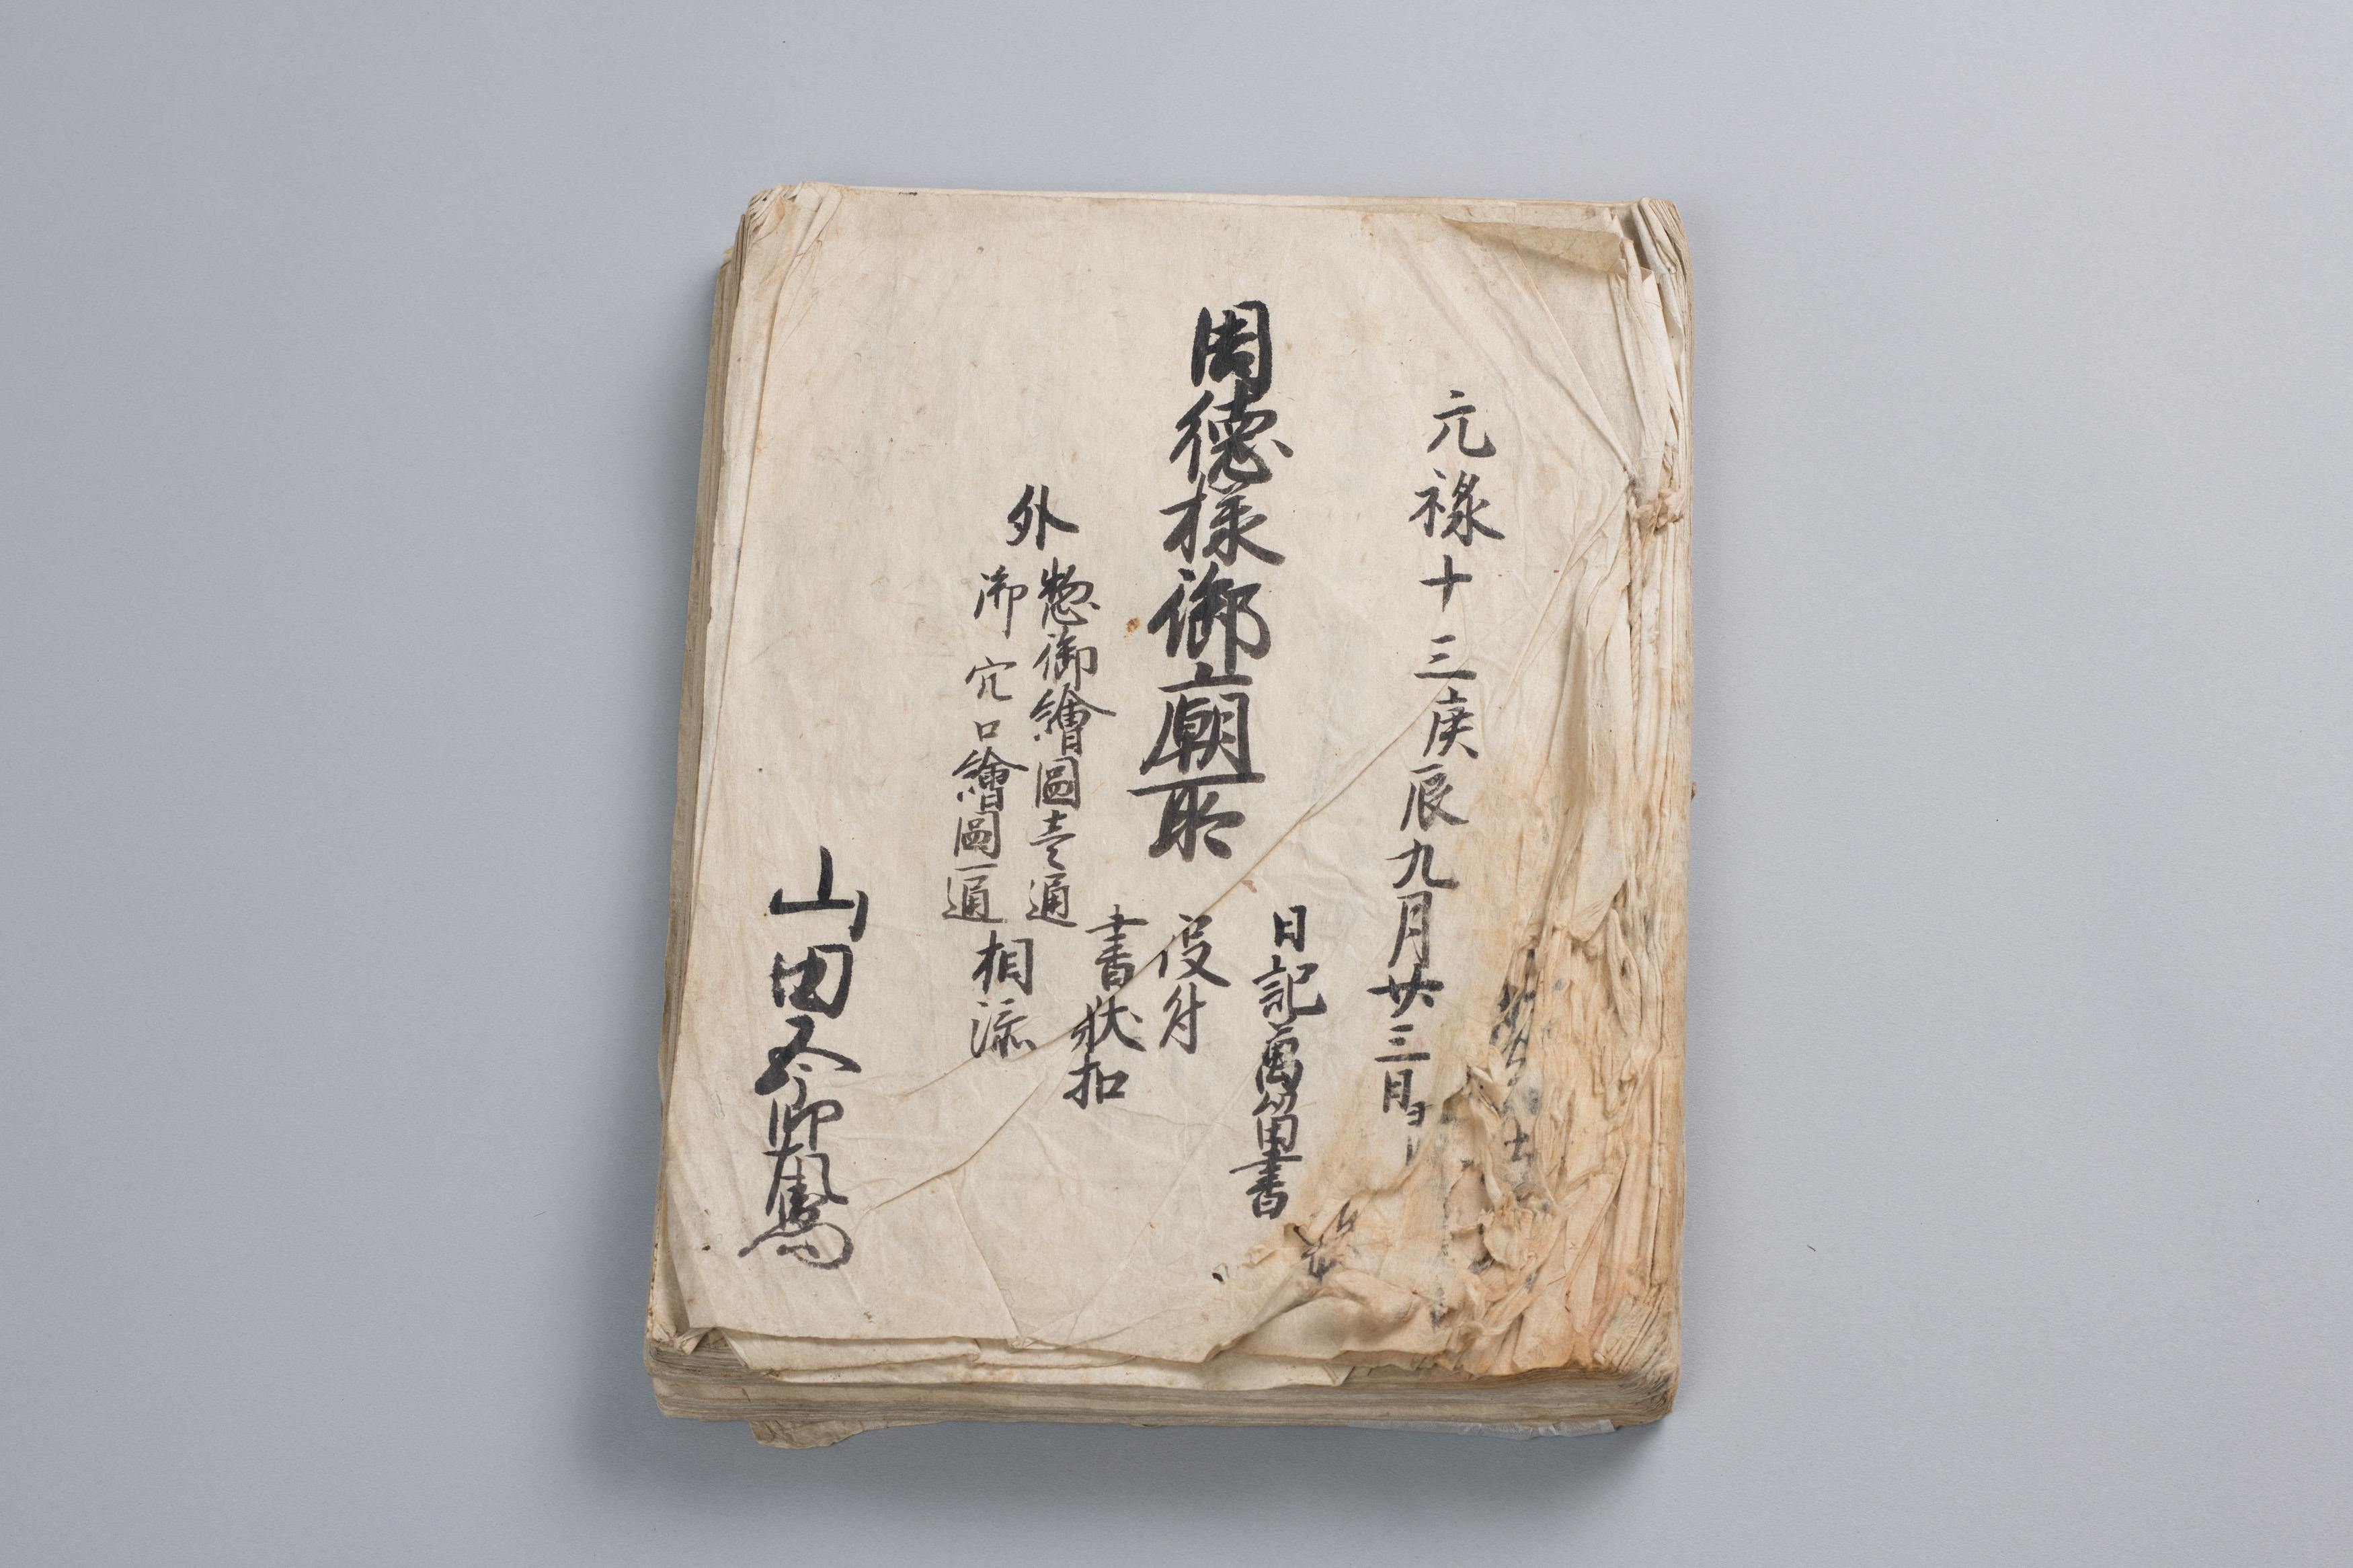 元禄十三庚辰九月廿三日ヨ
周徳様御廟所
日記萬留書
役付
書状扣
外
惣御繪圖壱通
御穴口繪圖一通
相添
山田